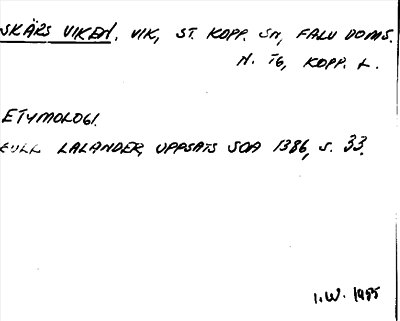 SKÄRS VIKEN. VIK, ST. KOPP. SN, FALU DOMS.
N. TG, KOPP. L.
ETYMOLOGI.
LALANDER, UPPSATS SOA 1386, S. 33.
I.W. 1985